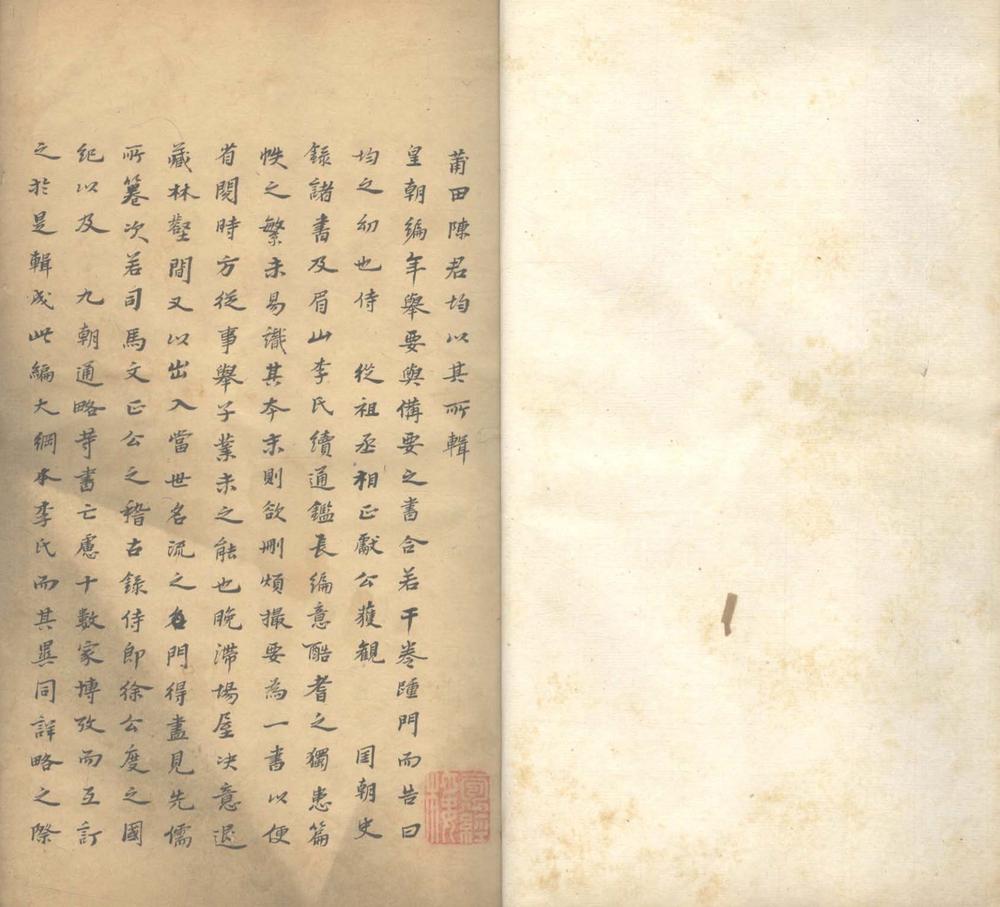 莆田陳君均以其所輯
皇朝編年舉要與備要之書合若干卷踵門而告曰
均之幼也侍 從祖丞相正獻公獲觀 國朝史
錄諸書及眉山李氏續通鑑長編意酷耆之獨患篇
帙之繁未易識其本末則欲刪煩撮要為一書以便
省閱時方從事舉子業未之能也晚滯場屋决意退
藏林壑間又以出入當世名流之名門得盡見先儒
所篹次若司馬文正公之稽古錄侍郎徐公度之國
紀以及 九朝通略䓁書亡慮十數家博攷而互訂
之於是輯成此編大綱本李氏而其異同詳略之際